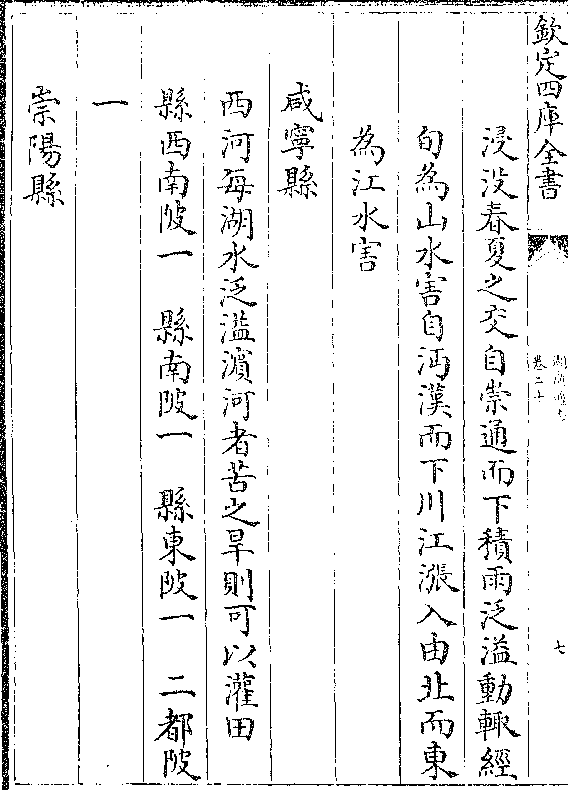 欽定四庫全書
卷二十
七
浸没春夏之交自崇通而下積雨泛溢動輒經
旬為山水害自沔漢而下川江漲入由北而東
為江水害
咸寧縣
西河每湖水泛溢濵河者苦之旱則可以灌田
縣西南陂一　縣南陂一　縣東陂一　二都陂
一
崇陽縣